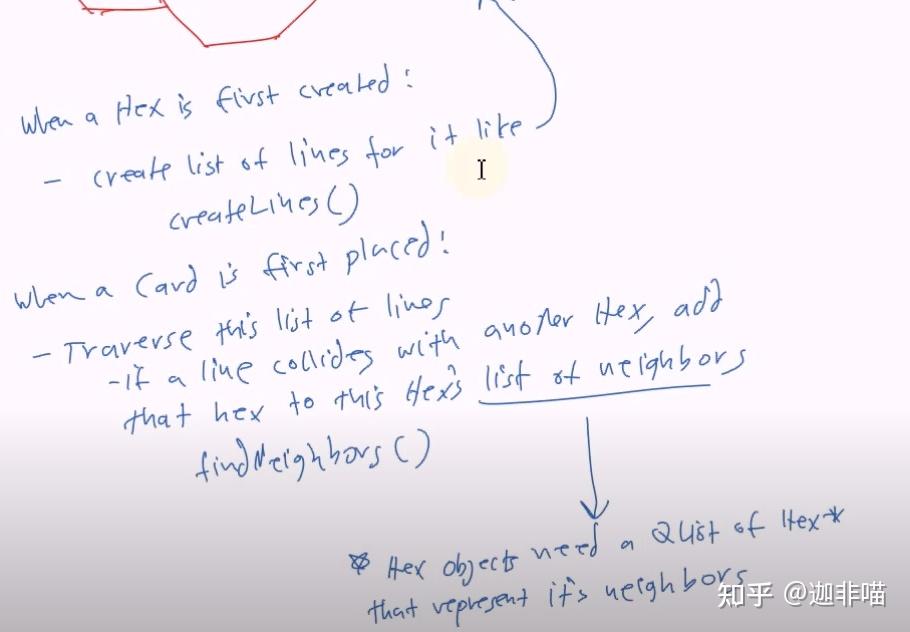 When a Hex is first created:
- create list of lines for it like
createLines()
When a Card is first placed:
- Traverse this list of lines
- if a line collides with another Hex, add
that hex to this Hex's list of neighbors
findNeighbors()
* Hex objects need a QList of Hex*
that represent it's neighbors
知乎 @迦非喵